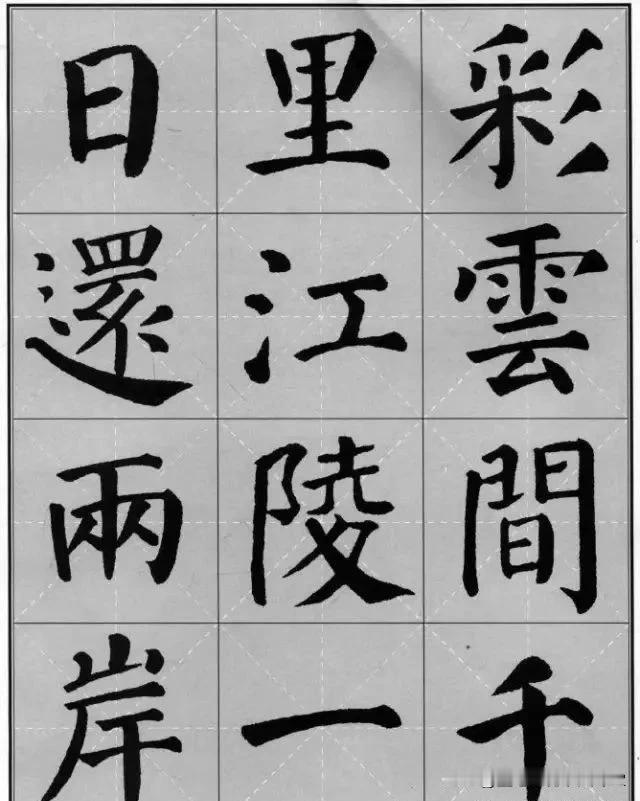 彩雲間千
里江陵一
日還兩岸